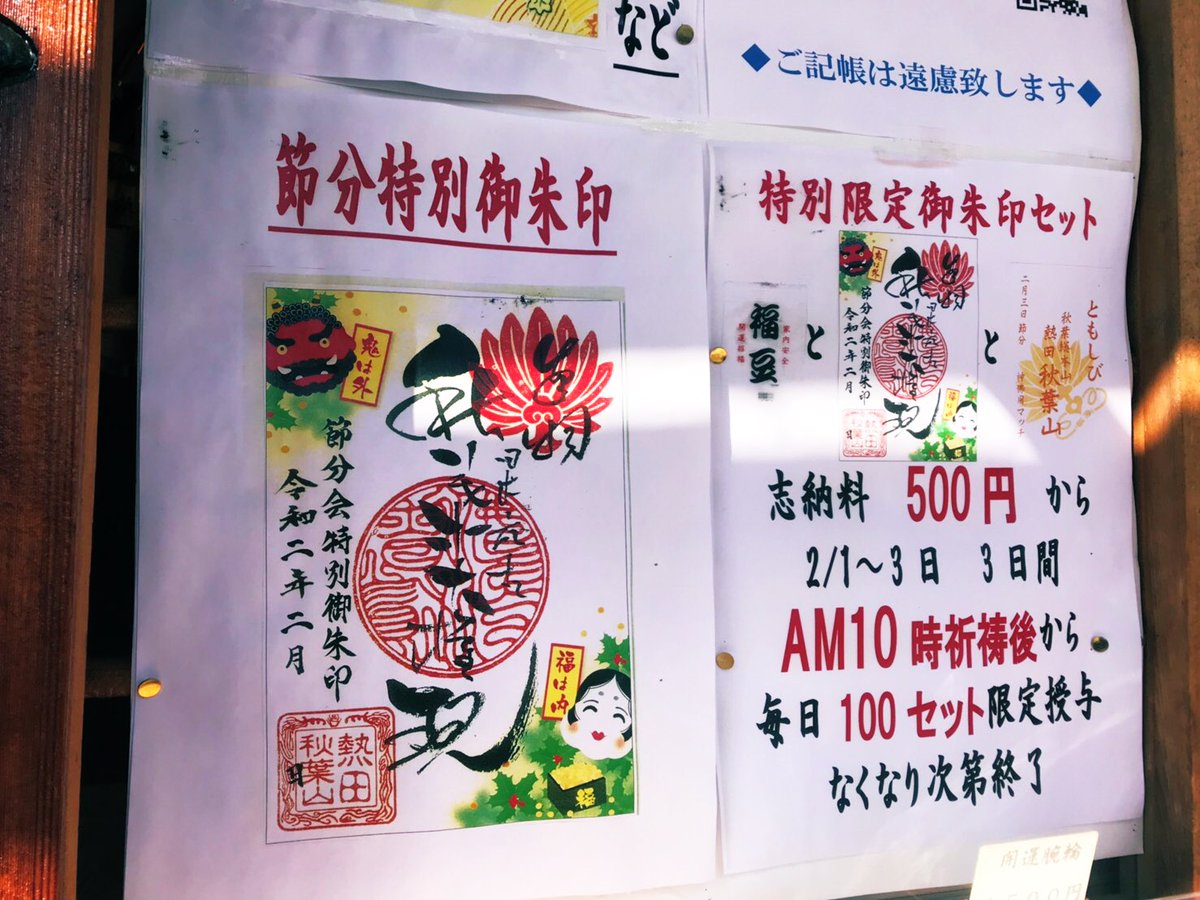 など
◆ご記帳は遠慮致します◆
節分特別御朱印
鬼は外
節分会特別御朱印
令和二年二月
福は内
福
熱田
秋葉山
特別限定御朱印セット
家内安全
福豆
開運招福
と
鬼は外
節分会特別御朱印
令和二年二月
熱田
と
ともしび
熱田秋葉山
二月三日節分
志納料 500円 から
2/1〜3日 3日間
AM10時祈祷後から
毎日100セット限定授与
なくなり次第終了
開運腕輪